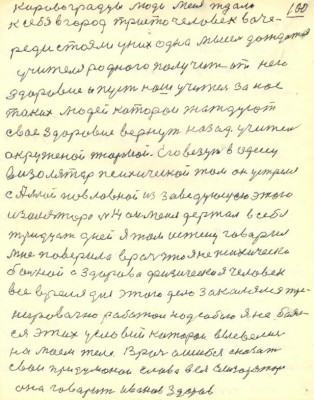 100
кировоградцы люди меня ждали
к себя в город триста человек в оче-
реди стояли у них одна мысль дождатся
учителя родного получит от него
здоровие и пуст наш учител за нас
таких людей которои жаждуют
свое здоровие вернут назад. учител
окружоной тюрмой. Его везут в одесу
в изолятор психичикои там он устроил
с Алой повловной из заведующую этого
изолятора №4 она меня держал в себя
тридцат дней я там истину говарил
мне поверила врач што я не психическо
болной а здоровое физическое человек
все время для этого дело закалялся тре-
нировачно работои над собою я не бояв-
ся этих условий которои вывели
на моем теле. Врач ошибся сказат
свои придуманои слава вся
она говарит Иванов здоров